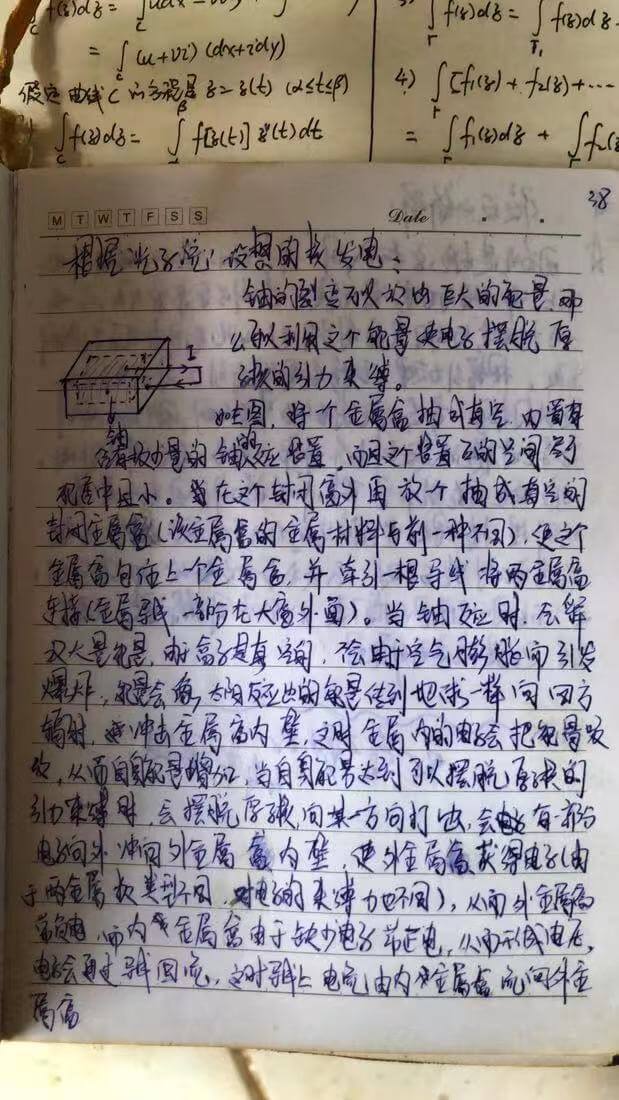 ∫f(z)dz = ∫udx - vdy +
= ∫(u+vi)(dx+idy)
假定曲线C的方程是z=z(t) (α≤t≤β)
∫f(z)dz = ∫f[z(t)]z'(t)dt
∫f(z)dz = ∫f(z)dz
4) ∫[f₁(z)+f₂(z)+…
= ∫f₁(z)dz + ∫f₂(z)
38
M T W T F S S Date
根据光子说,设想的核发电:
铀的裂变可以放出巨大的能量,那
么可以利用这个能量使电子摆脱原
子核的引力束缚。
I
铀
如左图,将一个金属盒抽成真空,内置有
含有较少量的铀的反应装置,而且这个装置占的空间
当在这个封闭盒外再放个抽成真空的
封闭金属盒(该金属盒的金属材料与前一种不同),使这个
金属盒包住上一个金属盒,并牵引一根导线将两金属盒
连接(金属导线一部分在大盒外面)。当铀反应时,会释
放大量能量,由于盒子是真空的,不会由于空气膨胀而引发
爆炸,能量会像太阳反应出的能量传到地球一样向四方
辐射,冲击金属盒内壁,这时金属内的电子会把能量吸
收,从而自身能量增加,当自身能量达到可以摆脱原子核的
引力束缚时,会摆脱原子核向某一方向打出,会有一部分
电子向外冲向外金属盒内壁,使外金属盒获得电子(由
于两金属核类型不同,对电子的束缚力也不同),从而外金属盒
带负电,而内金属盒由于缺少电子带正电,从而形成电压,
电子会通过导线回流,这时导线上电流由内金属盒流向外金
属盒